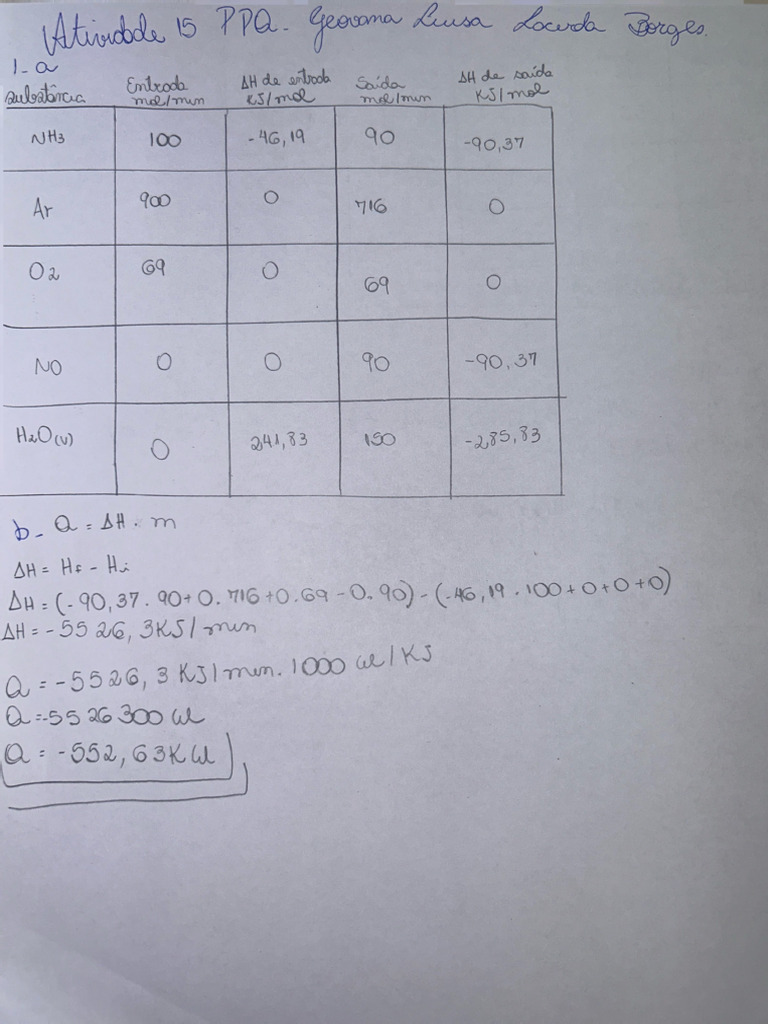 Atividade 15 PPQ - Geovana Luisa Lacerda Borges.
1-a
substância Entrada mol/min ΔH de entrada KJ/mol Saída mol/min ΔH de saída KJ/mol
NH3 100 -46,19 90 -90,37
Ar 900 0 716 0
O2 69 0 69 0
NO 0 0 90 -90,37
H2O(v) 0 241,83 150 -285,83
b- Q = ΔH . m
ΔH = Hf - Hi
ΔH = (-90,37 . 90 + 0 . 716 + 0 . 69 - 0 . 90) - (-46,19 . 100 + 0 + 0 + 0)
ΔH = -5526,3 KJ/min
Q = -5526,3 KJ/min . 1000 W/KJ
Q = -5526300 W
Q = -552,63 KW